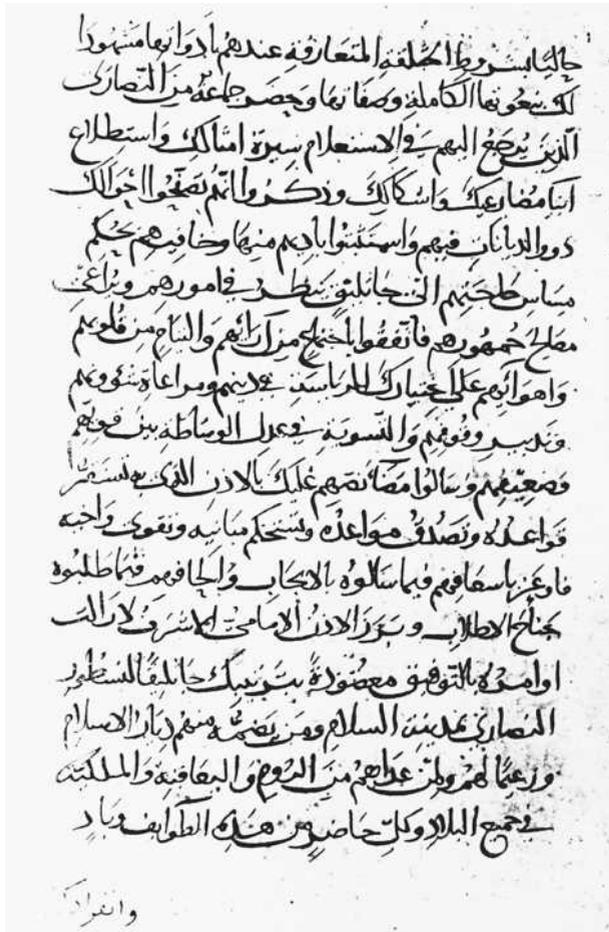 حاليا بشروط الجثلقة المتعارفة عندهم بادواتها مشهودا
لك بنعوتها الكاملة وصفاتها وحضر جماعة من النصارى
الذين يرجع اليهم في الاستعلام سيرة امثالك واستطلاع
انبا مضارعيك واشكالك وذكروا انهم تصفحوا احوال
ذوي الديانات فيهم باديهم منها وخافيهم بحكم
مساس حاجتهم الى جاثليق ينظر في امورهم ويراعي
مصالح جمهورهم فاتفقوا باجماع من آرائهم والتيام من قلوبهم
واهوائهم على اختيارك في دينهم ومراعاة شؤونهم
وتدبير وقوفهم والتسوية في عدل الوساطة بين قويهم
وضعيفهم وسالوا نصهم عليك بالاذن الذي به تستقر
قواعده وتصدق مواعده وتستحكم مبانيه وتقوى
فاوعز باسعافهم فيما سالوه بالايجاب والحافهم فيما طلبوه
جناح الاطلاب وبرز الاذن الامامي الاشرف لا زالت
اوامره بالتوفيق معضودة بترتيبك جاثليقا لنسطور
النصارى بمدينة السلام ومن تضمه منهم ديار الاسلام
وزعيما لهم ولمن عداهم من الروم واليعاقبة والملكية
في جميع البلاد وكل حاضر من هذه الطوايف وباد
وانفرادك